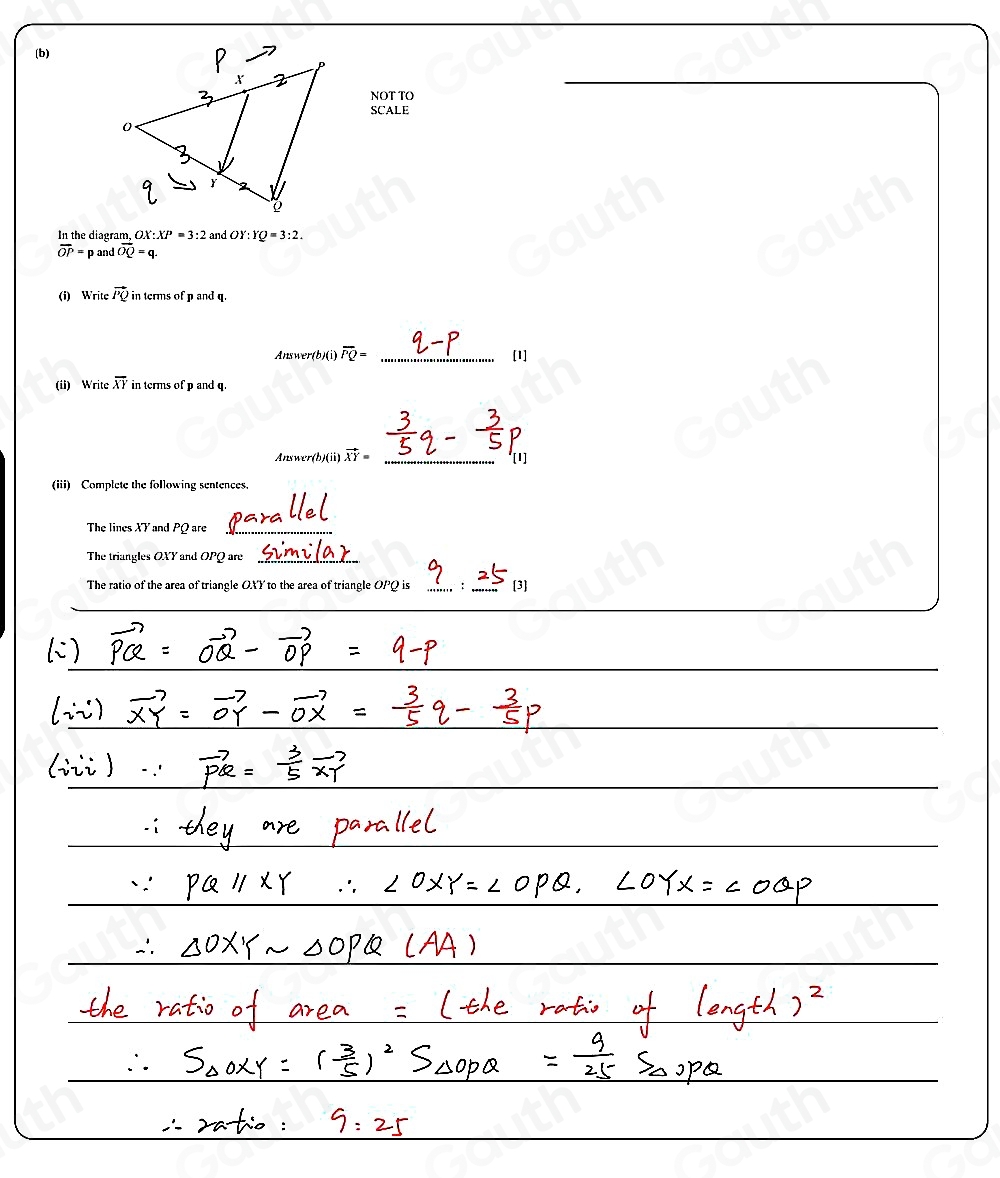 (b)
P →
X 2 P
3
O
3
q → Y 2
Q
NOT TO
SCALE
In the diagram, OX:XP = 3:2 and OY:YQ = 3:2.
OP = p and OQ = q.
(i) Write PQ in terms of p and q.
q-p
Answer(b)(i) PQ = .............................. [1]
(ii) Write XY in terms of p and q.
3/5 q - 3/5 p
Answer(b)(ii) XY = .............................. [1]
(iii) Complete the following sentences.
The lines XY and PQ are parallel
The triangles OXY and OPQ are similar
The ratio of the area of triangle OXY to the area of triangle OPQ is 9 : 25 [3]
(i) PQ = OQ - OP = q-p
(ii) XY = OY - OX = 3/5 q - 3/5 p
(iii) ∵ PQ = 3/5 XY
∴ they are parallel
∵ PQ // XY ∴ ∠OXY=∠OPQ. ∠OYX=∠OQP
∴ △OXY ~ △OPQ (AA)
the ratio of area = (the ratio of length)²
∴ S△OXY = (3/5)² S△OPQ = 9/25 S△OPQ
∴ ratio: 9:25
Gauth